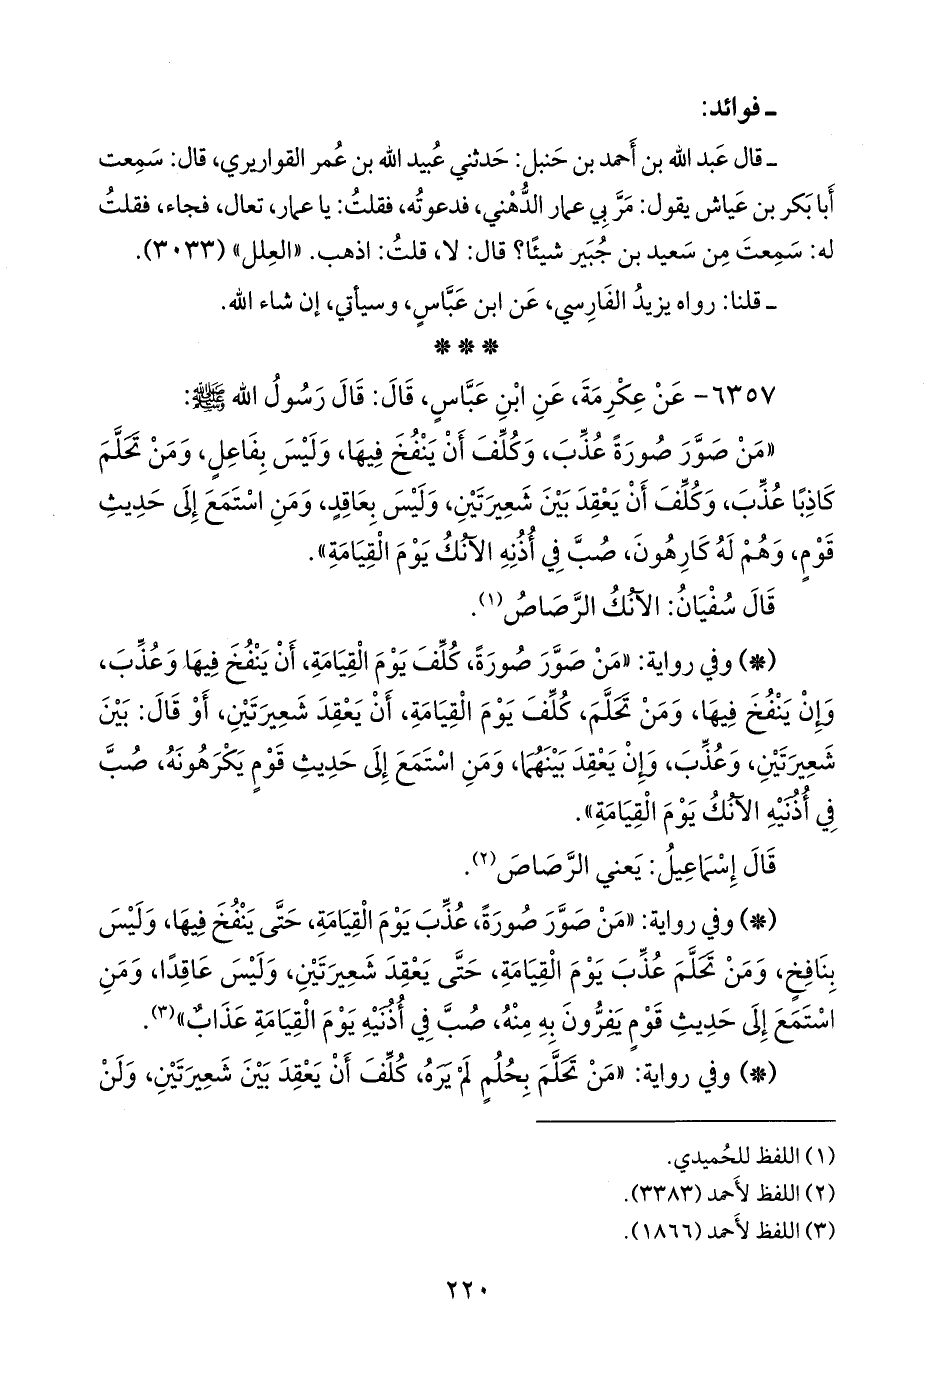 ـ فوائد:
ـ قال عَبد الله بن أَحمد بن حَنبل: حَدثني عُبيد الله بن عُمر القواريري، قال: سَمِعت
أَبا بَكر بن عَياش يقول: مَرَّ بِي عمار الدُّهْني، فدعوتُه، فقلتُ: يا عمار، تعال، فجاء، فقلتُ
له: سَمِعتَ مِن سَعيد بن جُبَير شيئًا؟ قال: لا، قلتُ: اذهب. «العِلل» (٣٠٣٣).
ـ قلنا: رواه يزيدُ الفَارِسي، عَن ابن عَبَّاسٍ، وسيأتي، إن شاء الله.
* * *
٦٣٥٧- عَنْ عِكْرِمَةَ، عَنِ ابْنِ عَبَّاسٍ، قَالَ: قَالَ رَسُولُ الله ﷺ:
«مَنْ صَوَّرَ صُورَةً عُذِّبَ، وَكُلِّفَ أَنْ يَنْفُخَ فِيهَا، وَلَيْسَ بِفَاعِلٍ، وَمَنْ تَحَلَّمَ
كَاذِبًا عُذِّبَ، وَكُلِّفَ أَنْ يَعْقِدَ بَيْنَ شَعِيرَتَيْنِ، وَلَيْسَ بِعَاقِدٍ، وَمَنِ اسْتَمَعَ إِلَى حَدِيثِ
قَوْمٍ، وَهُمْ لَهُ كَارِهُونَ، صُبَّ فِي أُذُنِهِ الآنُكُ يَوْمَ الْقِيَامَةِ».
قَالَ سُفْيَانُ: الآنُكُ الرَّصَاصُ(١).
(*) وفي رواية: «مَنْ صَوَّرَ صُورَةً، كُلِّفَ يَوْمَ الْقِيَامَةِ، أَنْ يَنْفُخَ فِيهَا وَعُذِّبَ،
وَإِنْ يَنْفُخَ فِيهَا، وَمَنْ تَحَلَّمَ، كُلِّفَ يَوْمَ الْقِيَامَةِ، أَنْ يَعْقِدَ شَعِيرَتَيْنِ، أَوْ قَالَ: بَيْنَ
شَعِيرَتَيْنِ، وَعُذِّبَ، وَإِنْ يَعْقِدَ بَيْنَهُمَا، وَمَنِ اسْتَمَعَ إِلَى حَدِيثِ قَوْمٍ يَكْرَهُونَهُ، صُبَّ
فِي أُذُنَيْهِ الآنُكُ يَوْمَ الْقِيَامَةِ».
قَالَ إِسْمَاعِيلُ: يَعني الرَّصَاصَ(٢).
(*) وفي رواية: «مَنْ صَوَّرَ صُورَةً، عُذِّبَ يَوْمَ الْقِيَامَةِ، حَتَّى يَنْفُخَ فِيهَا، وَلَيْسَ
بِنَافِخٍ، وَمَنْ تَحَلَّمَ عُذِّبَ يَوْمَ الْقِيَامَةِ، حَتَّى يَعْقِدَ شَعِيرَتَيْنِ، وَلَيْسَ عَاقِدًا، وَمَنِ
اسْتَمَعَ إِلَى حَدِيثِ قَوْمٍ يَفِرُّونَ بِهِ مِنْهُ، صُبَّ فِي أُذُنَيْهِ يَوْمَ الْقِيَامَةِ عَذَابٌ»(٣).
(*) وفي رواية: «مَنْ تَحَلَّمَ بِحُلُمٍ لَمْ يَرَهُ، كُلِّفَ أَنْ يَعْقِدَ بَيْنَ شَعِيرَتَيْنِ، وَلَنْ
(١) اللفظ للحُميدي.
(٢) اللفظ لأَحمد (٣٣٨٣).
(٣) اللفظ لأَحمد (١٨٦٦).
٢٢٠